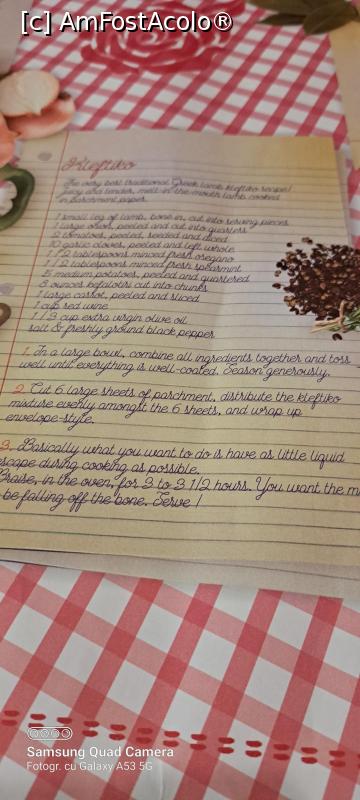 [c] AmFostAcolo®
Kleftiko
The very best traditional Greek lamb kleftiko recipe!
Juicy and tender, melt-in-the mouth lamb cooked
in parchment paper.
1 small leg of lamb, bone in, cut into serving pieces
1 large onion, peeled and cut into quarters
2 tomatoes, peeled, seeded and diced
10 garlic cloves, peeled and left whole
1 1/2 tablespoons minced fresh oregano
1 1/2 tablespoons minced fresh spearmint
5 medium potatoes, peeled and quartered
8 ounces kefalotiri cut into chunks
1 large carrot, peeled and sliced
1 cup red wine
1 1/3 cup extra virgin olive oil
salt & freshly ground black pepper
1. In a large bowl, combine all ingredients together and toss
well until everything is well-coated. Season generously.
2. Cut 6 large sheets of parchment, distribute the kleftiko
mixture evenly amongst the 6 sheets, and wrap up
envelope-style.
3. Basically what you want to do is have as little liquid
escape during cooking as possible.
Braise, in the oven, for 3 to 3 1/2 hours. You want the m
be falling off the bone. Serve !
Samsung Quad Camera
Fotogr. cu Galaxy A53 5G